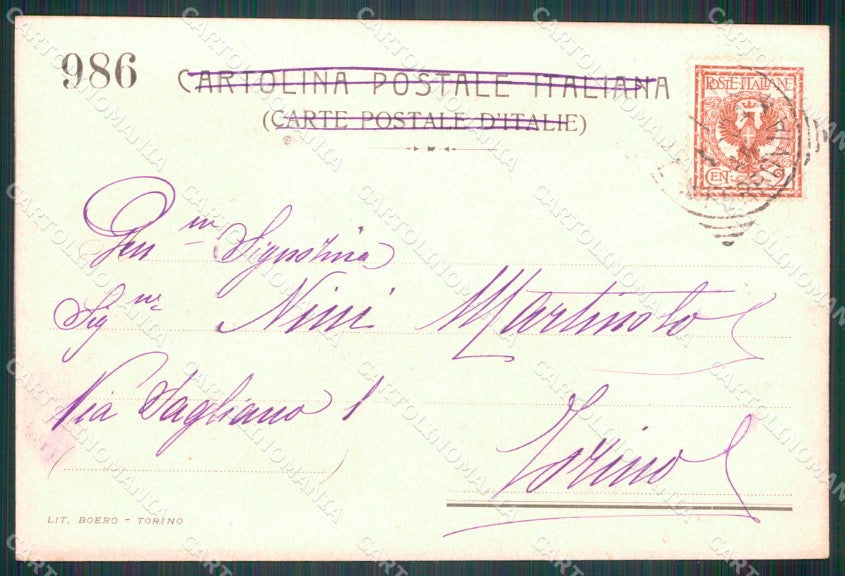 986
CARTOLINA POSTALE ITALIANA
(CARTE POSTALE D'ITALIE)
POSTE·ITALIANE
CEN. 2
Gen ma Signorina
Sig na Nini Martinolo
Via Pagliano 1
Torino
LIT. BOERO - TORINO
CARTOLINOMANIA